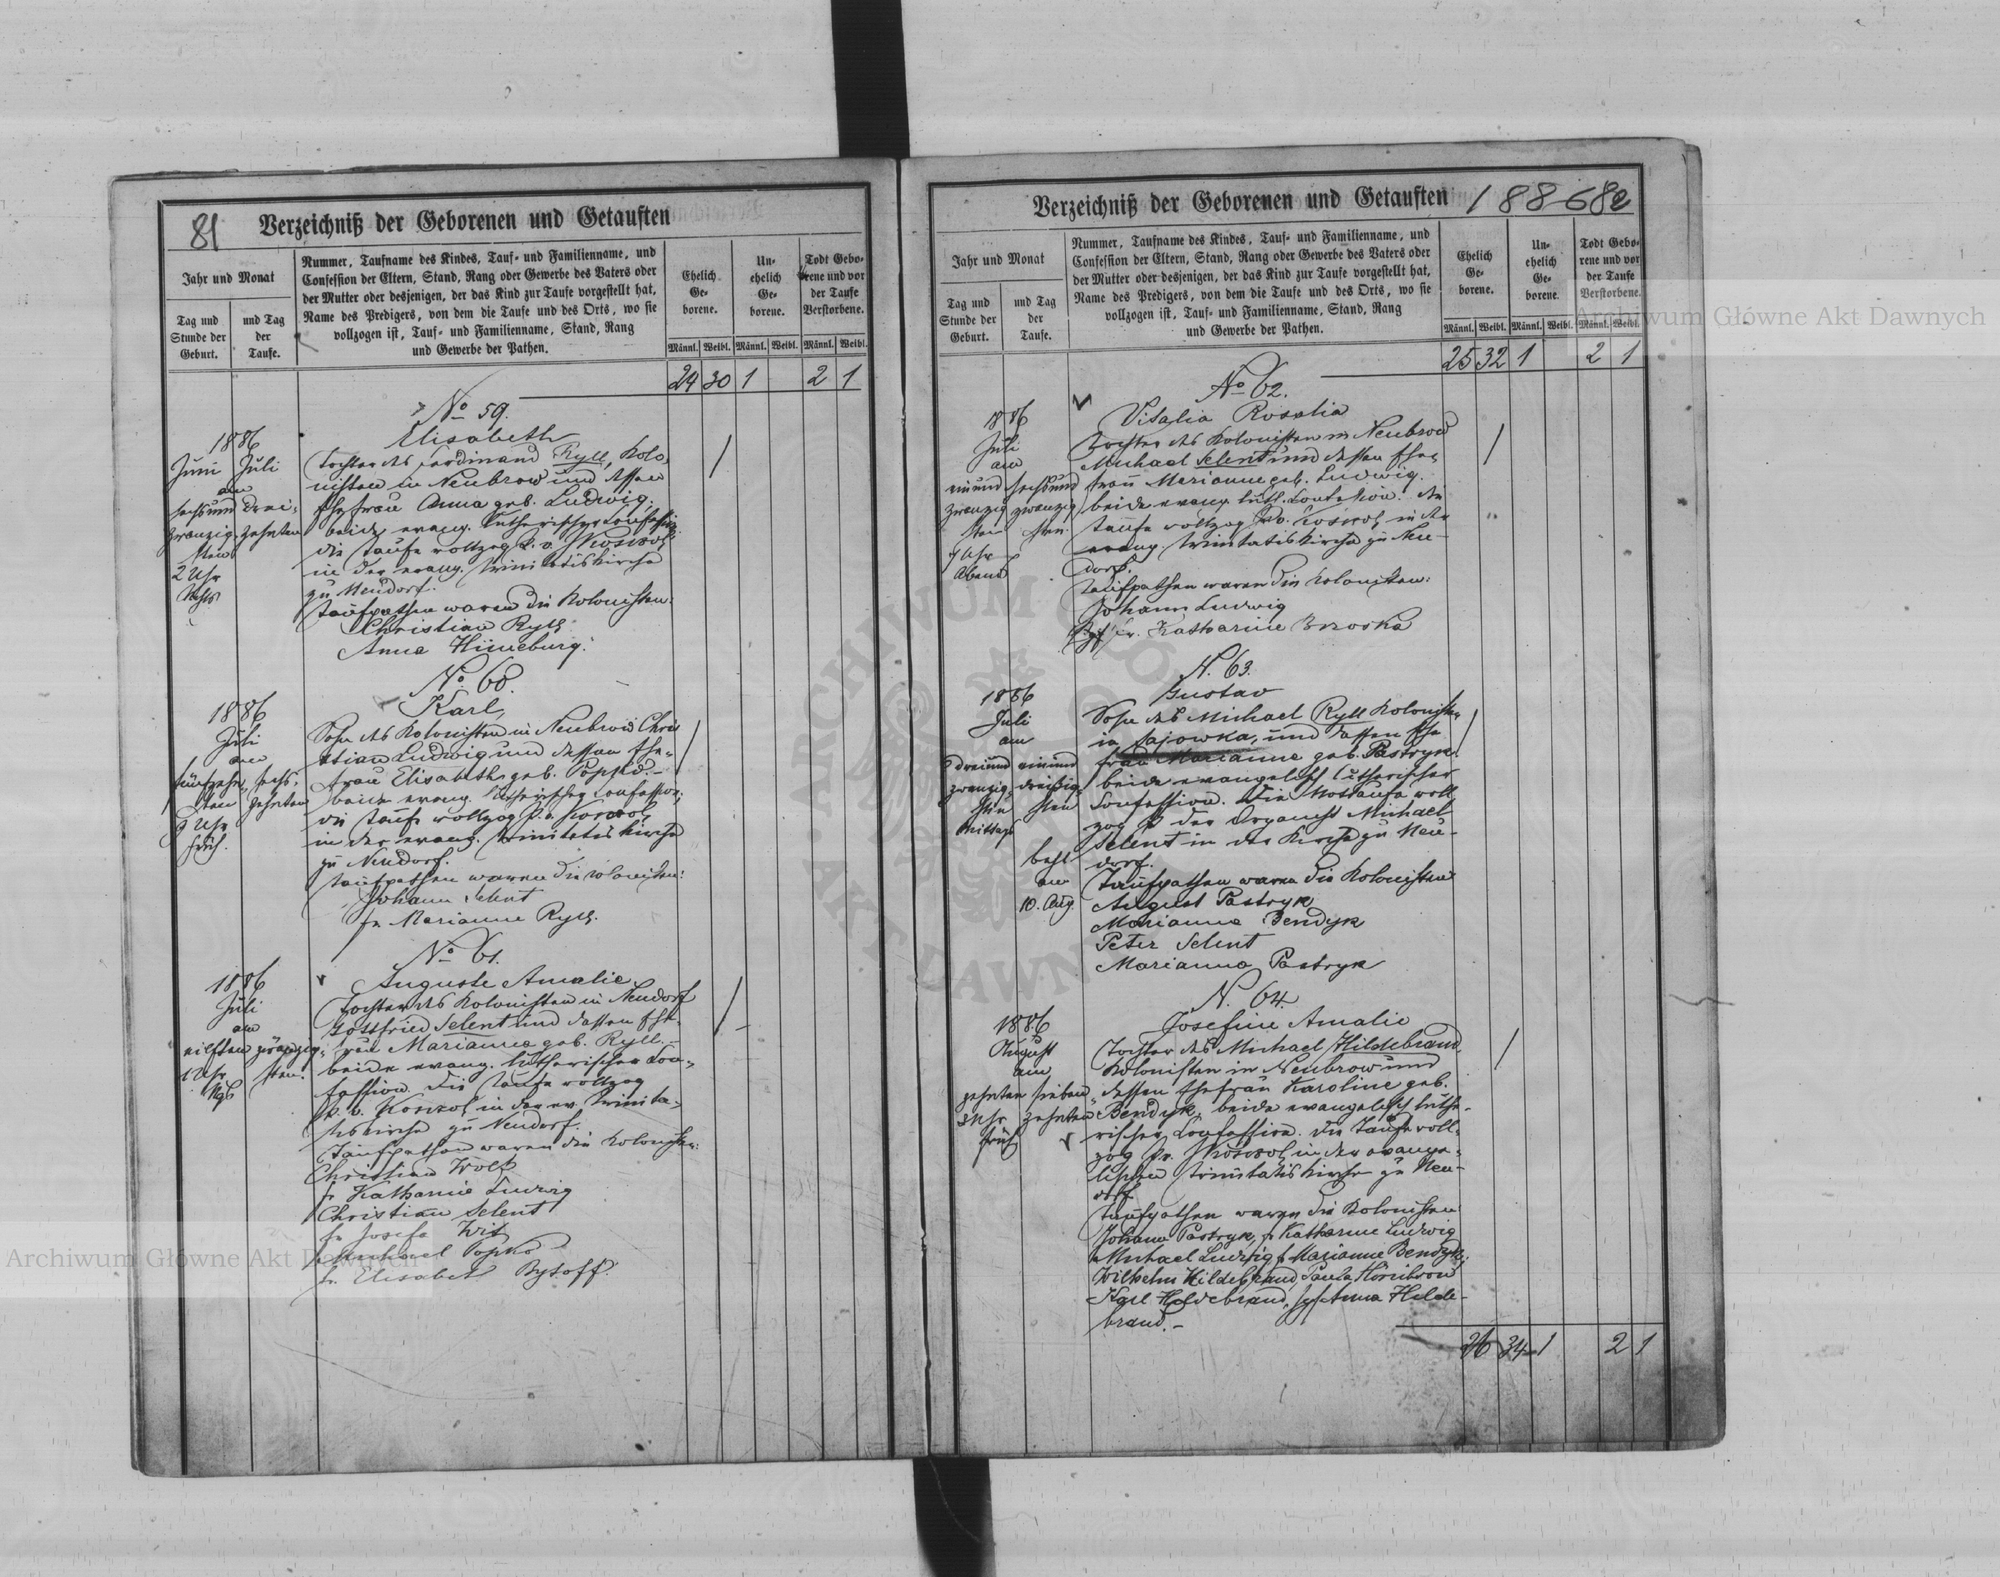 81 Verzeichniß der Geborenen und Getauften
Jahr und Monat
Tag und Stunde der Geburt.
und Tag der Taufe.
Nummer, Taufname des Kindes, Tauf- und Familienname, und
Confession der Eltern, Stand, Rang oder Gewerbe des Vaters oder
der Mutter oder desjenigen, der das Kind zur Taufe vorgestellt hat,
Name des Predigers, von dem die Taufe und des Orts, wo sie
vollzogen ist, Tauf- und Familienname, Stand, Rang
und Gewerbe der Pathen.
Ehelich Ge-borene.
Un-ehelich Ge-borene.
Todt Gebo-rene und vor der Taufe Verstorbene.
Männl. Weibl. Männl. Weibl. Männl. Weibl.
24 30 1 2 1
No 59.
1886
Juni Juli
am
sechsund drei-
zwanzig- zehnten
sten
2 Uhr
Nachts
Elisabeth
Tochter des Ferdinand Ryll, Kolo-
nisten in Neubrow und dessen
Ehefrau Anna geb. Ludwig.
beide evang. lutherischer Confession
die Taufe vollzog P. v.
in der evang. Trinitatiskirche
zu Neudorf.
Taufpathen waren die Kolonisten:
Christian Ryll
Anna Hineburg.
No 60.
1886
Juli
am
fünfzehn- sechs-
ten zehnten
Uhr
früh.
Karl,
Sohn des Kolonisten in Neubrow Chris
tian Ludwig und dessen Ehe-
frau Elisabeth geb. Popko.
beide evang. lutherischer Confession;
die Taufe vollzog P. v.
in der evang. Trinitatiskirche
zu Neudorf.
Taufpathen waren die Kolonisten:
Johann Selent
fr Marianne Ryll.
No 61.
1886
Juli
am
eilften zwanzig-
1 Uhr sten.
Auguste Amalie
Tochter des Kolonisten in Neudorf
Gottfried Selent und dessen Ehe-
frau Marianna geb. Ryll.
beide evang. lutherischer Con-
fession. Die Taufe vollzog
P. v. in der ev. Trinita-
tiskirche zu Neudorf.
Taufpathen waren die Kolonisten:
Christian Wolf
fr Katharine Ludwig
Christian Selent
fr Josefa
Michael Popko
fr. Elisabet Bytoff.
Verzeichniß der Geborenen und Getauften 1886 82
Jahr und Monat
Tag und Stunde der Geburt.
und Tag der Taufe.
Nummer, Taufname des Kindes, Tauf- und Familienname, und
Confession der Eltern, Stand, Rang oder Gewerbe des Vaters oder
der Mutter oder desjenigen, der das Kind zur Taufe vorgestellt hat,
Name des Predigers, von dem die Taufe und des Orts, wo sie
vollzogen ist, Tauf- und Familienname, Stand, Rang
und Gewerbe der Pathen.
Ehelich Ge-borene.
Un-ehelich Ge-borene.
Todt Gebo-rene und vor der Taufe Verstorbene.
Männl. Weibl. Männl. Weibl. Männl. Weibl.
25 32 1 2 1
No 62.
1886
Juli
am
einund sechsund
zwanzig zwanzig
sten sten.
Uhr
Abend
Vitalia Rosalia
Tochter des Kolonisten in Neubrow
Michael Selent und dessen Ehe-
frau Marianne geb. Ludwig.
beide evang. luth. Confession. die
Taufe vollzog P. v. in der
evang. Trinitatiskirche zu Neu-
dorf.
Taufpathen waren die Kolonisten:
Johann Ludwig
Katharine Brzoska
N. 63.
1886
Juli
am
dreiund einund
zwanzig- dreißig-
sten sten
Mittags
am
10. Aug.
Gustav
Sohn des Michael Ryll Koloniste
in Sajowka, und dessen Ehe
frau Marianne geb. Pastryk.
beide evangelisch lutherischer
Confession. Die Nottaufe voll
zog der Organist Michael
Selent in der Kirche zu Neu-
dorf.
Taufpathen waren die Kolonisten
August Pastryk
Marianna Bendyk
Peter Selent
Marianna Pastryk
N. 64.
1886
August
am
zehnten sieben-
Uhr zehnten
früh
Josefine Amalie
Tochter des Michael Hildebrand,
Kolonisten in Neubrow und
dessen Ehefrau Karoline geb.
Bendyk, beide evangelisch luthe-
rischer Confession. die Taufe voll-
zog P. v. in der evange-
lischen Trinitatiskirche zu Neu-
dorf.
Taufpathen waren die Kolonisten
Johann Pastryk, fr Katharine Ludwig
Michael Ludwig fr Marianne Bendyk,
Wilhelm Hildebrand, Paula
Karl Hildebrand, Anna Hilde-
brand.-
36 34 1 2 1
Archiwum Główne Akt Dawnych
Archiwum Główne Akt Dawnych
ARCHIWUM GŁÓWNE AKT DAWNYCH